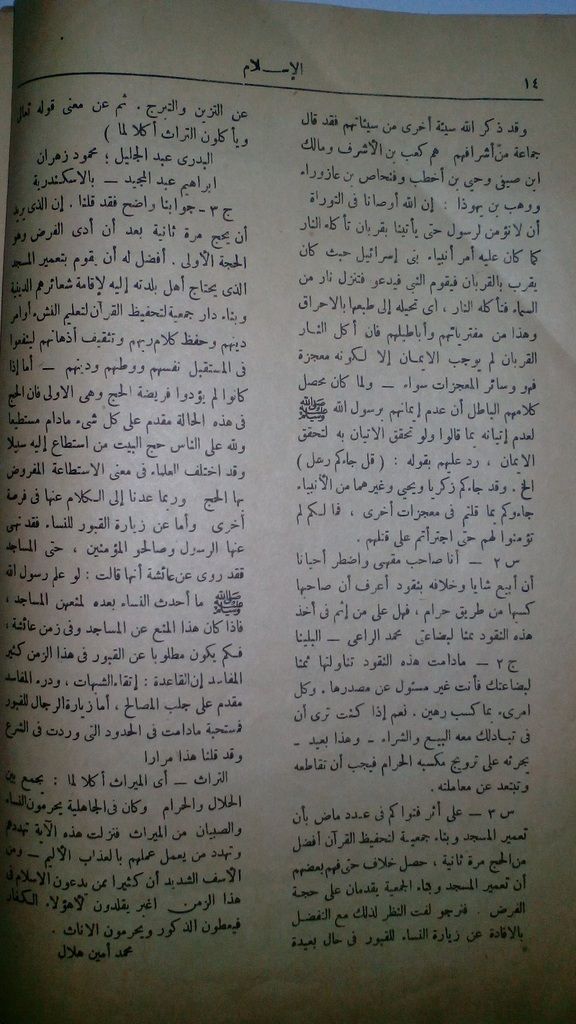 ١٤
الإسلام
وقد ذكر الله سيئة أخرى من سيئاتهم فقد قال
جماعة من أشرافهم هم كعب بن الأشرف ومالك
ابن صيفي وحيى بن أخطب وفنحاص بن عازوراء
ووهب بن يهوذا : إن الله أوصانا فى التوراة
أن لانؤمن لرسول حتى يأتينا بقربان تأكله النار
كما كان عليه أمر أنبياء بنى إسرائيل حيث كان
يقرب بالقربان فيقوم النبى فيدعو فتنزل نار من
السماء فتأكله النار ، اى تحيله إلى طبعها بالاحراق
وهذا من مفترياتهم وأباطيلهم فان أكل النار
القربان لم يوجب الايمان إلا لكونه معجزة
فهو وسائر المعجزات سواء — ولما كان محصل
كلامهم الباطل أن عدم إيمانهم برسول الله ﷺ
لعدم إتيانه بما قالوا ولو تحقق الاتيان به لتحقق
الايمان ، رد عليهم بقوله : ( قل جاءكم رسل )
الخ . وقد جاءكم زكريا ويحيى وغيرهما من الأنبياء
جاءوكم بما قلتم فى معجزات أخرى ، فما لكم لم
تؤمنوا لهم حتى اجترأتم على قتلهم .
س ٢ — أنا صاحب مقهى واضطر أحيانا
أن أبيع شايا وخلافه بنقود أعرف أن صاحبها
كسبها من طريق حرام ، فهل على من إثم فى أخذ
هذه النقود ثمنا لبضاعتى محمد الراعى — البلينا
ج ٢ — مادامت هذه النقود تناولتها ثمنا
لبضاعتك فأنت غير مسئول عن مصدرها . وكل
امرىء بما كسب رهين . نعم إذا كنت ترى أن
فى تبادلك معه البيع والشراء - وهذا بعيد -
يجرئه على ترويج مكسبه الحرام فيجب أن تقاطعه
وتبتعد عن معاملته .
س ٣ — على أثر فتواكم فى عدد ماض بأن
تعمير المسجد وبناء جمعية لتحفيظ القرآن أفضل
من الحج مرة ثانية ، حصل خلاف حتى فهم بعضهم
أن تعمير المسجد وبناء الجمعية يقدمان على حجة
الفرض . فنرجو لفت النظر لذلك مع التفضل
بالافادة عن زيارة النساء للقبور فى حال بعيدة
عن التزين والتبرج . ثم عن معنى قوله تعالى
ويأكلون التراث أكلا لما )
البدرى عبد الجليل ؛ محمود زهران
ابراهيم عبد المجيد — بالاسكندرية
ج ٣ - جوابنا واضح فقد قلنا . إن الذى يريد
أن يحج مرة ثانية بعد أن أدى الفرض وهو
الحجة الأولى . أفضل له أن يقوم بتعمير المسجد
الذى يحتاج أهل بلدته إليه لإقامة شعائرهم الدينية
وبناء دار جمعية لتحفيظ القرآن لتعليم النشء أوامر
دينهم وحفظ كلام ربهم وتثقيف أذهانهم لينفعوا
فى المستقبل نفسهم ووطنهم ودينهم — أما إذا
كانوا لم يؤدوا فريضة الحج وهى الاولى فان الحج
فى هذه الحالة مقدم على كل شىء مادام مستطيعا
ولله على الناس حج البيت من استطاع إليه سبيلا
وقد اختلف العلماء فى معنى الاستطاعة المفروض
بها الحج وربما عدنا إلى الكلام عنها فى فرصة
أخرى وأما عن زيارة القبور للنساء فقد نهى
عنها الرسول وصالحو المؤمنين ، حتى المساجد
فقد روى عن عائشة أنها قالت : لو علم رسول الله
ﷺ ما أحدث النساء بعده لمنعهن المساجد ،
فاذا كان هذا المنع عن المساجد وفى زمن عائشة ،
فكم يكون مطلوبا عن القبور فى هذا الزمن كثير
المفاسد إن القاعدة : إتقاء الشبهات ، ودرء المفاسد
مقدم على جلب المصالح ، أما زيارة الرجال للقبور
فمستحبة مادامت فى الحدود التى وردت فى الشرع
وقد قلنا هذا مرارا
التراث — أى الميراث أكلا لما : يجمع بين
الحلال والحرام وكان فى الجاهلية يحرمون النساء
والصبيان من الميراث فنزلت هذه الآية تهددهم
وتهدد من يعمل عملهم بالعذاب الأليم — ومن
الأسف الشديد أن كثيرا ممن يدعون الاسلام فى
هذا الزمن يقلدون هؤلاء الكفار
فيعطون الذكور ويحرمون الاناث .
محمد أمين هلال